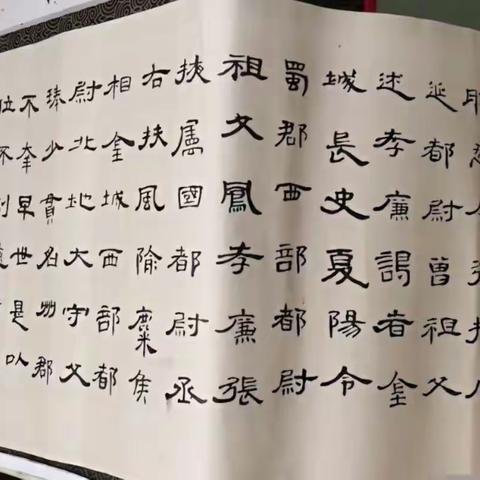 延都尉曾祖父
述孝廉謁者金
城長史夏陽令
蜀郡西部都尉
祖父鳳孝廉張
掖屬國都尉丞
右扶風隃麋侯
相金城西部都
尉北地大守父
琫少貫名州郡
不幸早世是以
位不